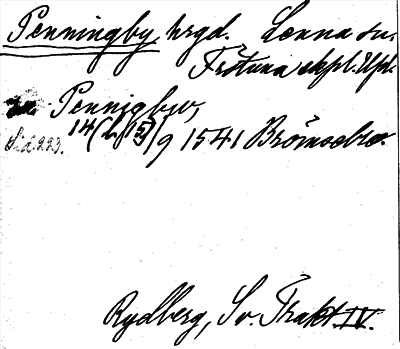 Penningby hrgd. Lenna sn.
Frötuna skpl. Upl.
Pennigbyw,
Sid. 223. 14(el. 15)/9 1541 Brömsebro.
Rydberg, Sv. Trakt. IV.